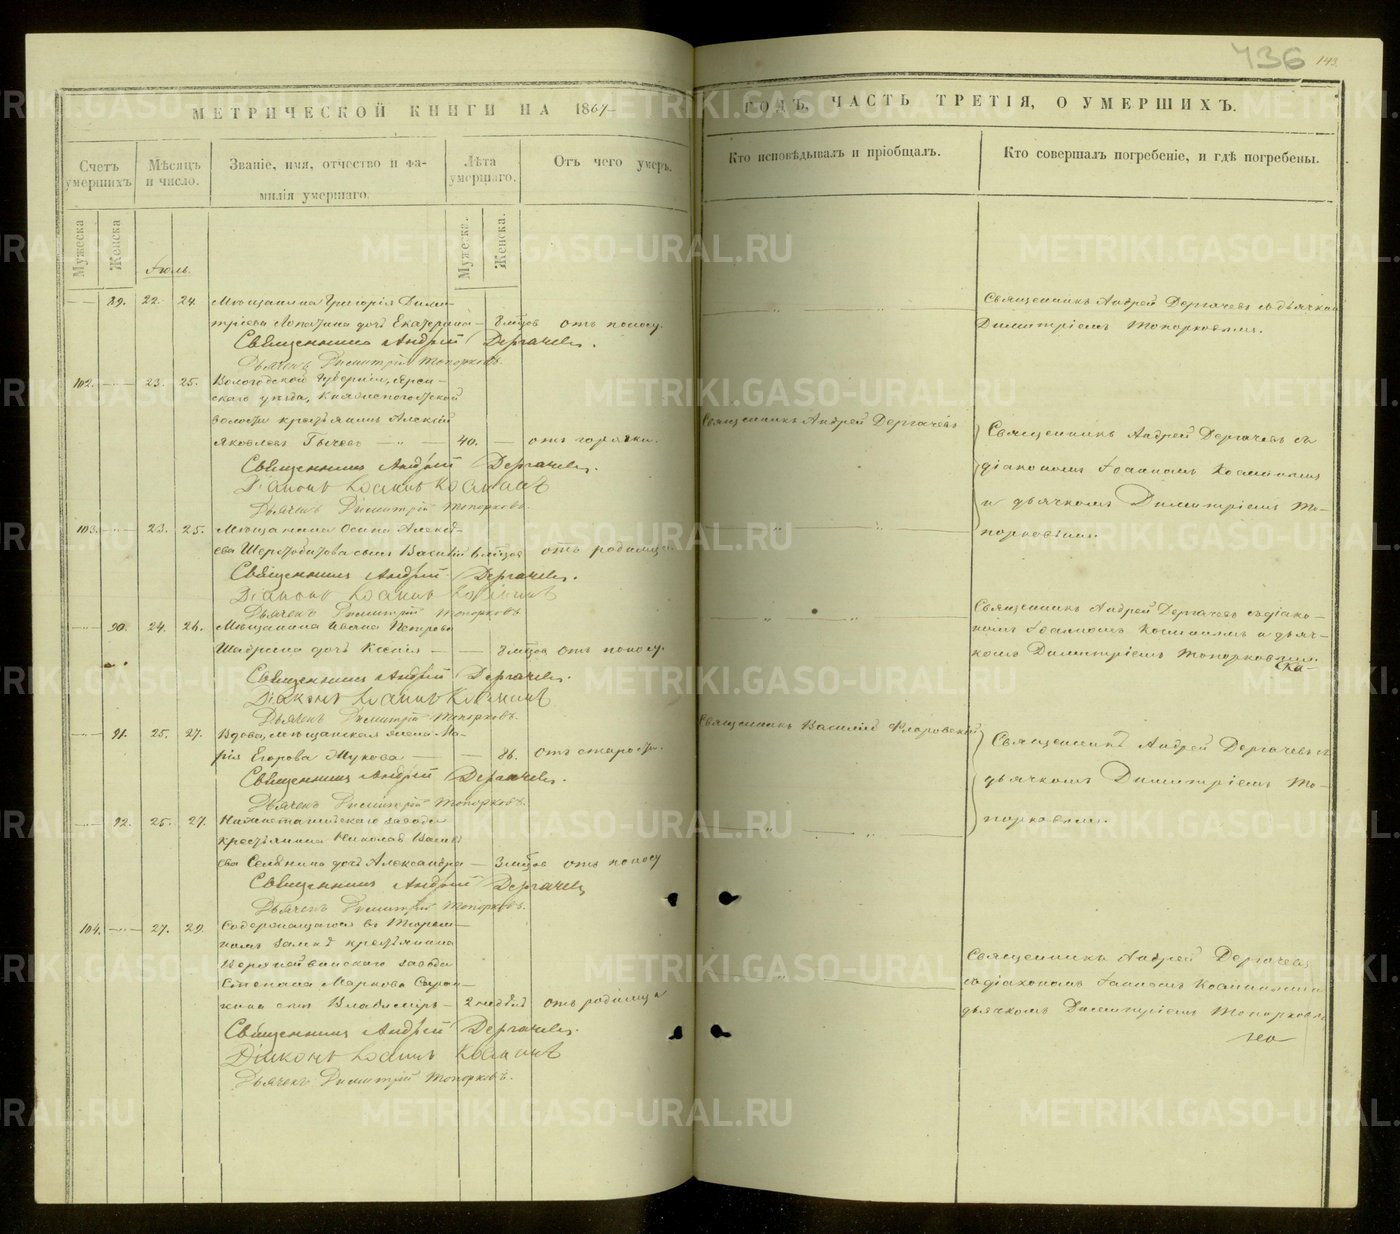 436 143
МЕТРИЧЕСКОЙ КНИГИ НА 1867
ГОДЪ, ЧАСТЬ ТРЕТІЯ, О УМЕРШИХЪ.
Счетъ умершихъ.
Мѣсяцъ и число.
Званіе, имя, отчество и фа-
милія умершаго.
Лѣта умершаго.
Отъ чего умеръ.
Кто исповѣдывалъ и пріобщалъ.
Кто совершалъ погребеніе, и гдѣ погребены.
Мужеска
Женска
Іюль.
Мужеска.
Женска.
89. 22. 24. Мѣщанина Григорія Дими-
тріева Лопатина дочь Екатерина — 8 мѣсцов отъ поносу.
Священникъ Андрей Дергачевъ.
Дьячекъ Димитрій Топорковъ.
Священникъ Андрей Дергачевъ съ дьячкомъ
Димитріемъ Топорковымъ.
102. 23. 25. Вологодской Губерніи, Ярен-
скаго уѣзда, Княжпогостской
волости крестьянинъ Алексѣй
Яковлевъ — 40. — отъ горячки.
Священникъ Андрей Дергачевъ.
Діаконъ Іоаннъ
Дьячекъ Димитрій Топорковъ.
Священникъ Андрей Дергачевъ
Священникъ Андрей Дергачевъ съ
діакономъ Іоанномъ
и дьячкомъ Димитріемъ То-
порковымъ.
103. 23. 25. Мѣщанина Осипа Алексѣ-
ева сынъ Василій 6 мѣсцов отъ родимца
Священникъ Андрей Дергачевъ.
Діаконъ Іоаннъ
Дьячекъ Димитрій Топорковъ.
90. 24. 26. Мѣщанина Ивана Петрова
Шадрина дочь Ксенія — 8 мѣсцов отъ поносу.
Священникъ Андрей Дергачевъ.
Діаконъ Іоаннъ
Дьячекъ Димитрій Топорковъ.
Священникъ Андрей Дергачевъ съ діако-
номъ Іоанномъ и дьяч-
комъ Димитріемъ Топорковымъ
91. 25. 27. Вдова, мѣщанская жена Ма-
рія Егорова Жукова — 86. отъ старости.
Священникъ Андрей Дергачевъ.
Дьячекъ Димитрій Топорковъ.
Священникъ Василій Флоровскій
Священникъ Андрей Дергачевъ съ
дьячкомъ Димитріемъ То-
порковымъ.
92. 25. 27. завода
крестьянина Николая Василь-
ева дочь Александра — 3 мѣсцов отъ поносу
Священникъ Андрей Дергачевъ
Дьячекъ Димитрій Топорковъ.
104. 27. 29. Содержащагося въ Тюрем-
номъ замкѣ крестьянина
Верхнейвинскаго завода
Степана Маркова
сынъ Владиміръ — 2 недѣль отъ родимца
Священникъ Андрей Дергачевъ.
Діаконъ Іоаннъ
Дьячекъ Димитрій Топорковъ.
Священникъ Андрей Дергачевъ
съ діакономъ Іоанномъ
дьячкомъ Димитріемъ Топорковымъ
METRIKI.GASO-URAL.RU